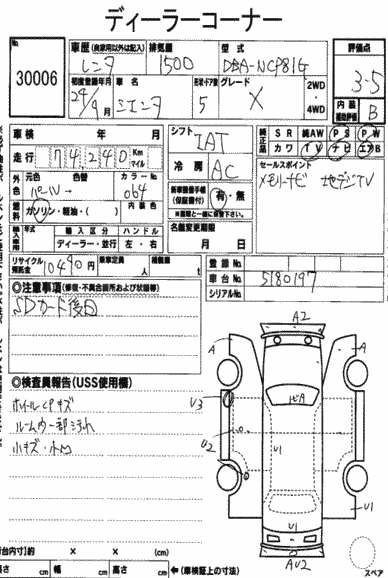 ディーラーコーナー
No. 30006
車歴 (自家用以外は記入) レンタ
排気量 1500
型式 DBA-NCP81G
評価点 3.5
初度登録年月 24年9月
車名 シエンタ
形状・ドア数 5
グレード X
2WD・4WD
内装補助評価 B
車検 年 月
走行 74240 Km マイル
シフト IAT
冷房 AC
純正品 SR 純AW PS PW
カワ TV ナビ エアB
セールスポイント
メモリーナビ 地デジTV
外装色 元色 パール 色替 → カラーNo. 064
燃料 ガソリン・軽油・( ) 内装色
新車整備手帳 (保証書付) 有・無
名義変更期限 月 日
輸入車用 年式 輸入区分 ハンドル
ディーラー・並行 左・右
リサイクル預託金 10490円 乗車定員 人 積載量 t
登録No.
車台No. 5180197
シリアルNo.
◎注意事項 (修復・不具合箇所および状態等)
SDカード後日
◎検査員報告(USS使用欄)
ホイールCPキズ
ルームウラ一部汚れ
小キズ・凹
A2
A
A
U3
U2
U1
U1
U1
AU2
スペア
台内寸】約 × × (cm)
長さ cm 幅 cm 高さ cm ←(車検証上の寸法)